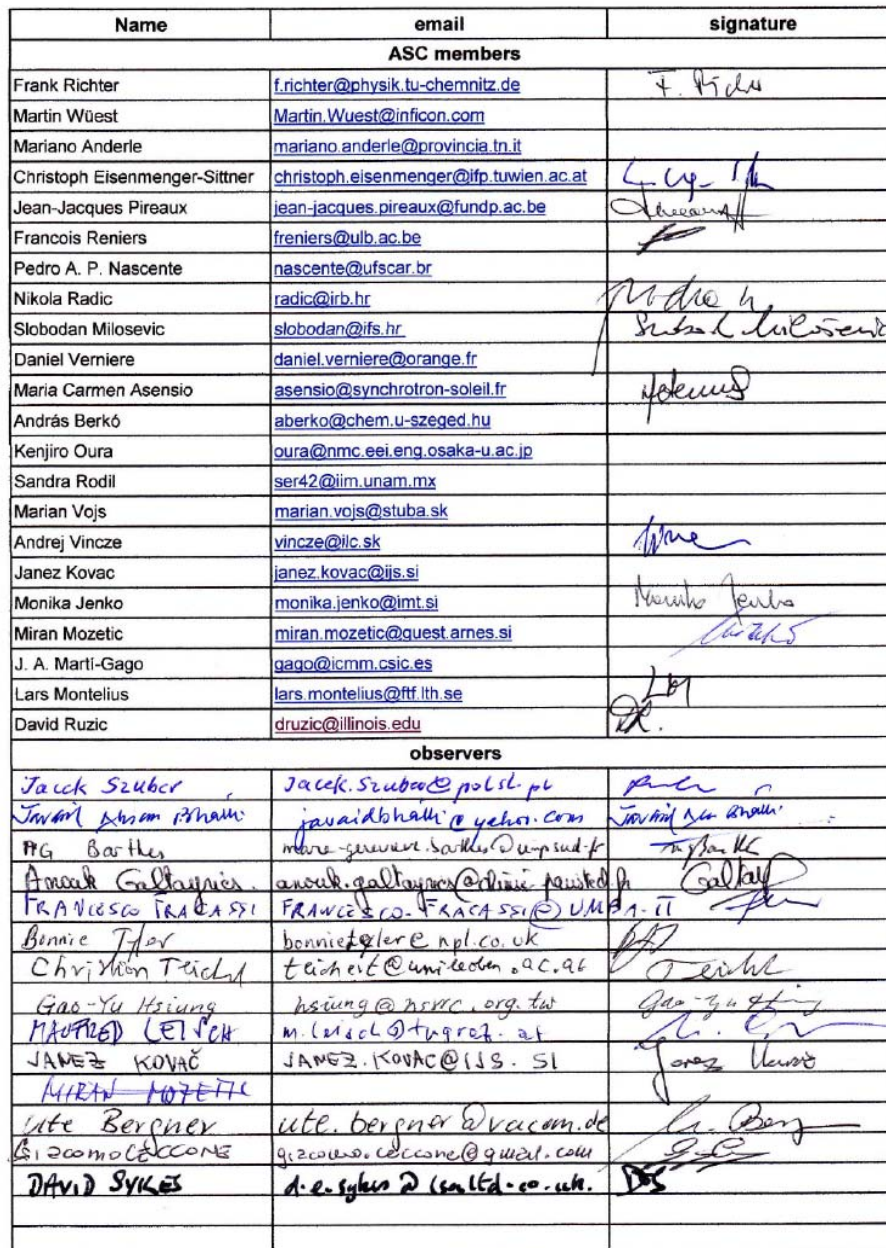 Name email signature
ASC members
Frank Richter f.richter@physik.tu-chemnitz.de F. Richter
Martin Wüest Martin.Wuest@inficon.com
Mariano Anderle mariano.anderle@provincia.tn.it
Christoph Eisenmenger-Sittner christoph.eisenmenger@ifp.tuwien.ac.at
Jean-Jacques Pireaux jean-jacques.pireaux@fundp.ac.be
Francois Reniers freniers@ulb.ac.be
Pedro A. P. Nascente nascente@ufscar.br
Nikola Radic radic@irb.hr
Slobodan Milosevic slobodan@ifs.hr
Daniel Verniere daniel.verniere@orange.fr
Maria Carmen Asensio asensio@synchrotron-soleil.fr
András Berkó aberko@chem.u-szeged.hu
Kenjiro Oura oura@nmc.eei.eng.osaka-u.ac.jp
Sandra Rodil ser42@iim.unam.mx
Marian Vojs marian.vojs@stuba.sk
Andrej Vincze vincze@ilc.sk
Janez Kovac janez.kovac@ijs.si
Monika Jenko monika.jenko@imt.si Monika Jenko
Miran Mozetic miran.mozetic@guest.arnes.si
J. A. Martí-Gago gago@icmm.csic.es
Lars Montelius lars.montelius@ftf.lth.se
David Ruzic druzic@illinois.edu DR.
observers
Jacek Szuber Jacek.Szuber@polsl.pl
Javaid Ahsan Bhatti javaidbhatti@yahoo.com
MG Barthes
Anouk Galtayries. Galtay
FRANCESCO FRACASSI FRANCESCO.FRACASSI@UNIBA.IT
Bonnie Tyler
Christian Teichert teichert@unileoben.ac.at Teichert
Gao-Yu Hsiung hsiung@nsrrc.org.tw Gao-Yu Hsiung
MANFRED LEISCH m.leisch@tugraz.at
JANEZ KOVAČ JANEZ.KOVAC@IJS.SI Janez Kovač
MIRAN MOZETIC
Ute Bergner ute.bergner@vacom.de
GiacomoCECCONE giacomo.ceccone@gmail.com
DAVID SYKES DS